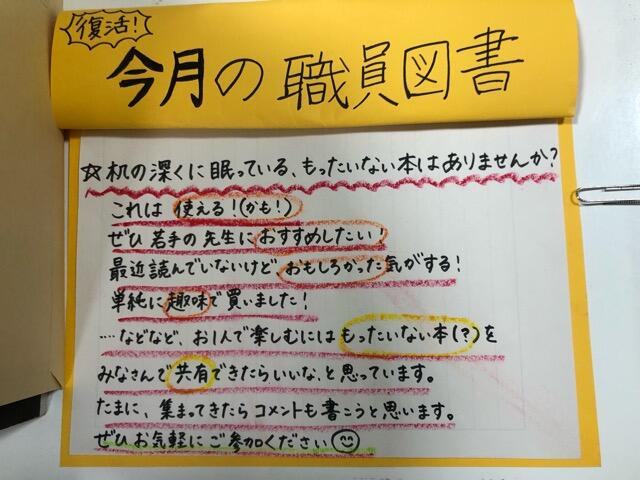 復活!
今月の職員図書
☆机の深くに眠っている、もったいない本はありませんか?
これは使える!(かも!)
ぜひ若手の先生におすすめしたい!
最近読んでいないけどおもしろかった気がする!
単純に趣味で買いました!
……などなど、お1人で楽しむにはもったいない本(?)を
みなさんで共有できたらいいな、と思っています。
たまに、集まってきたらコメントも書こうと思います。
ぜひお気軽にご参加ください☺